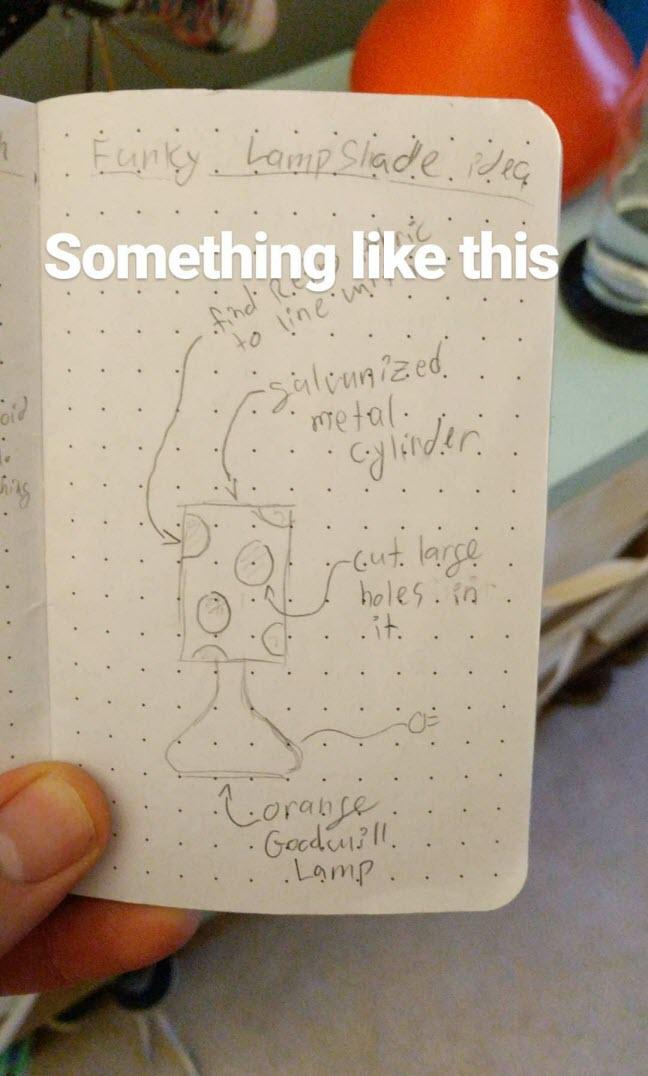 Funky LampShade idea
Something like this
find
to line
galvanized
metal
cylinder
cut large
holes in
it.
orange
Goodwill
Lamp
oid
hing